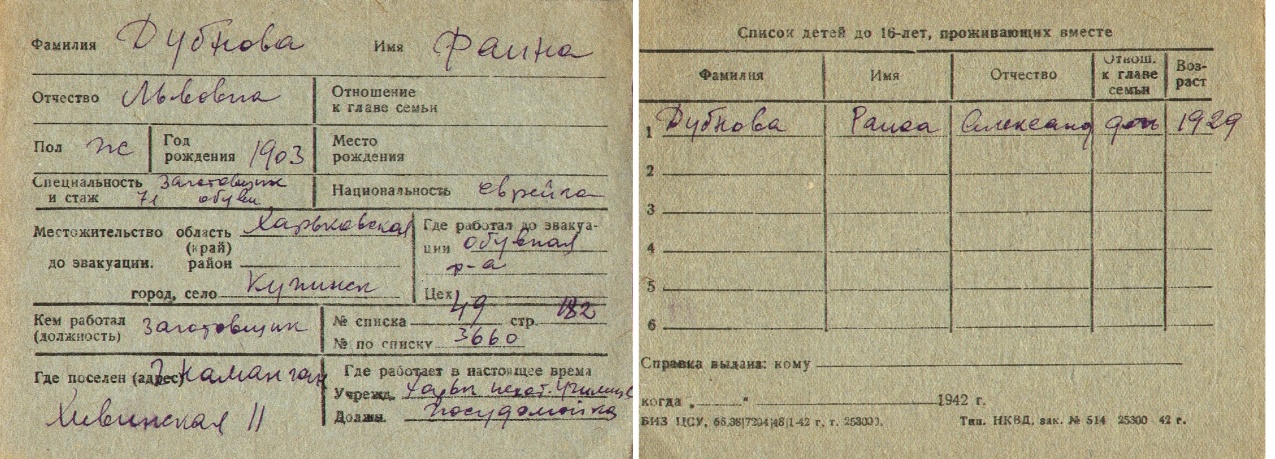 Фамилия Дубнова Имя Фаина
Отчество Львовна Отношение к главе семьи
Пол ж Год рождения 1903 Место рождения
Специальность и стаж Заготовщик обуви Национальность еврейка
Местожительство до эвакуации. область (край) Харьковская
район
город, село Купинск
Где работал до эвакуации обувная ф-а
Цех
Кем работал (должность) Заготовщик
№ списка 49 стр. 182
№ по списку 3660
Где поселен (адрес) Наманган
Хивинская 11
Где работает в настоящее время
Учрежд. Харьк пехот. Училище
Должн. Посудомойка
Список детей до 16-лет, проживающих вместе
Фамилия Имя Отчество Отнош. к главе семьи Возраст
1 Дубнова Раиса Александ дочь 1929
2
3
4
5
6
Справка выдана: кому
когда „ “ 1942 г.
БИЗ ЦСУ, 1-42 г. т.
Тип. НКВД, зак. № 514 25300 42 г.